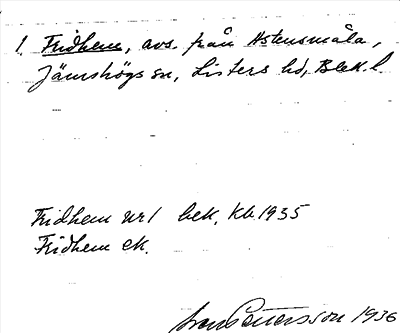 1. Fridhem, avs. från Astensmåla,
Jämshögs sn, Listers hd, Blek. l.
Fridhem nr 1 bek. Kb. 1935
Fridhem ek.
Sven Petersson 1936